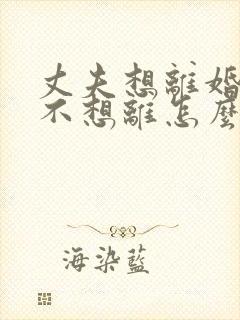 丈夫想離婚
不想離怎麼
海染藍